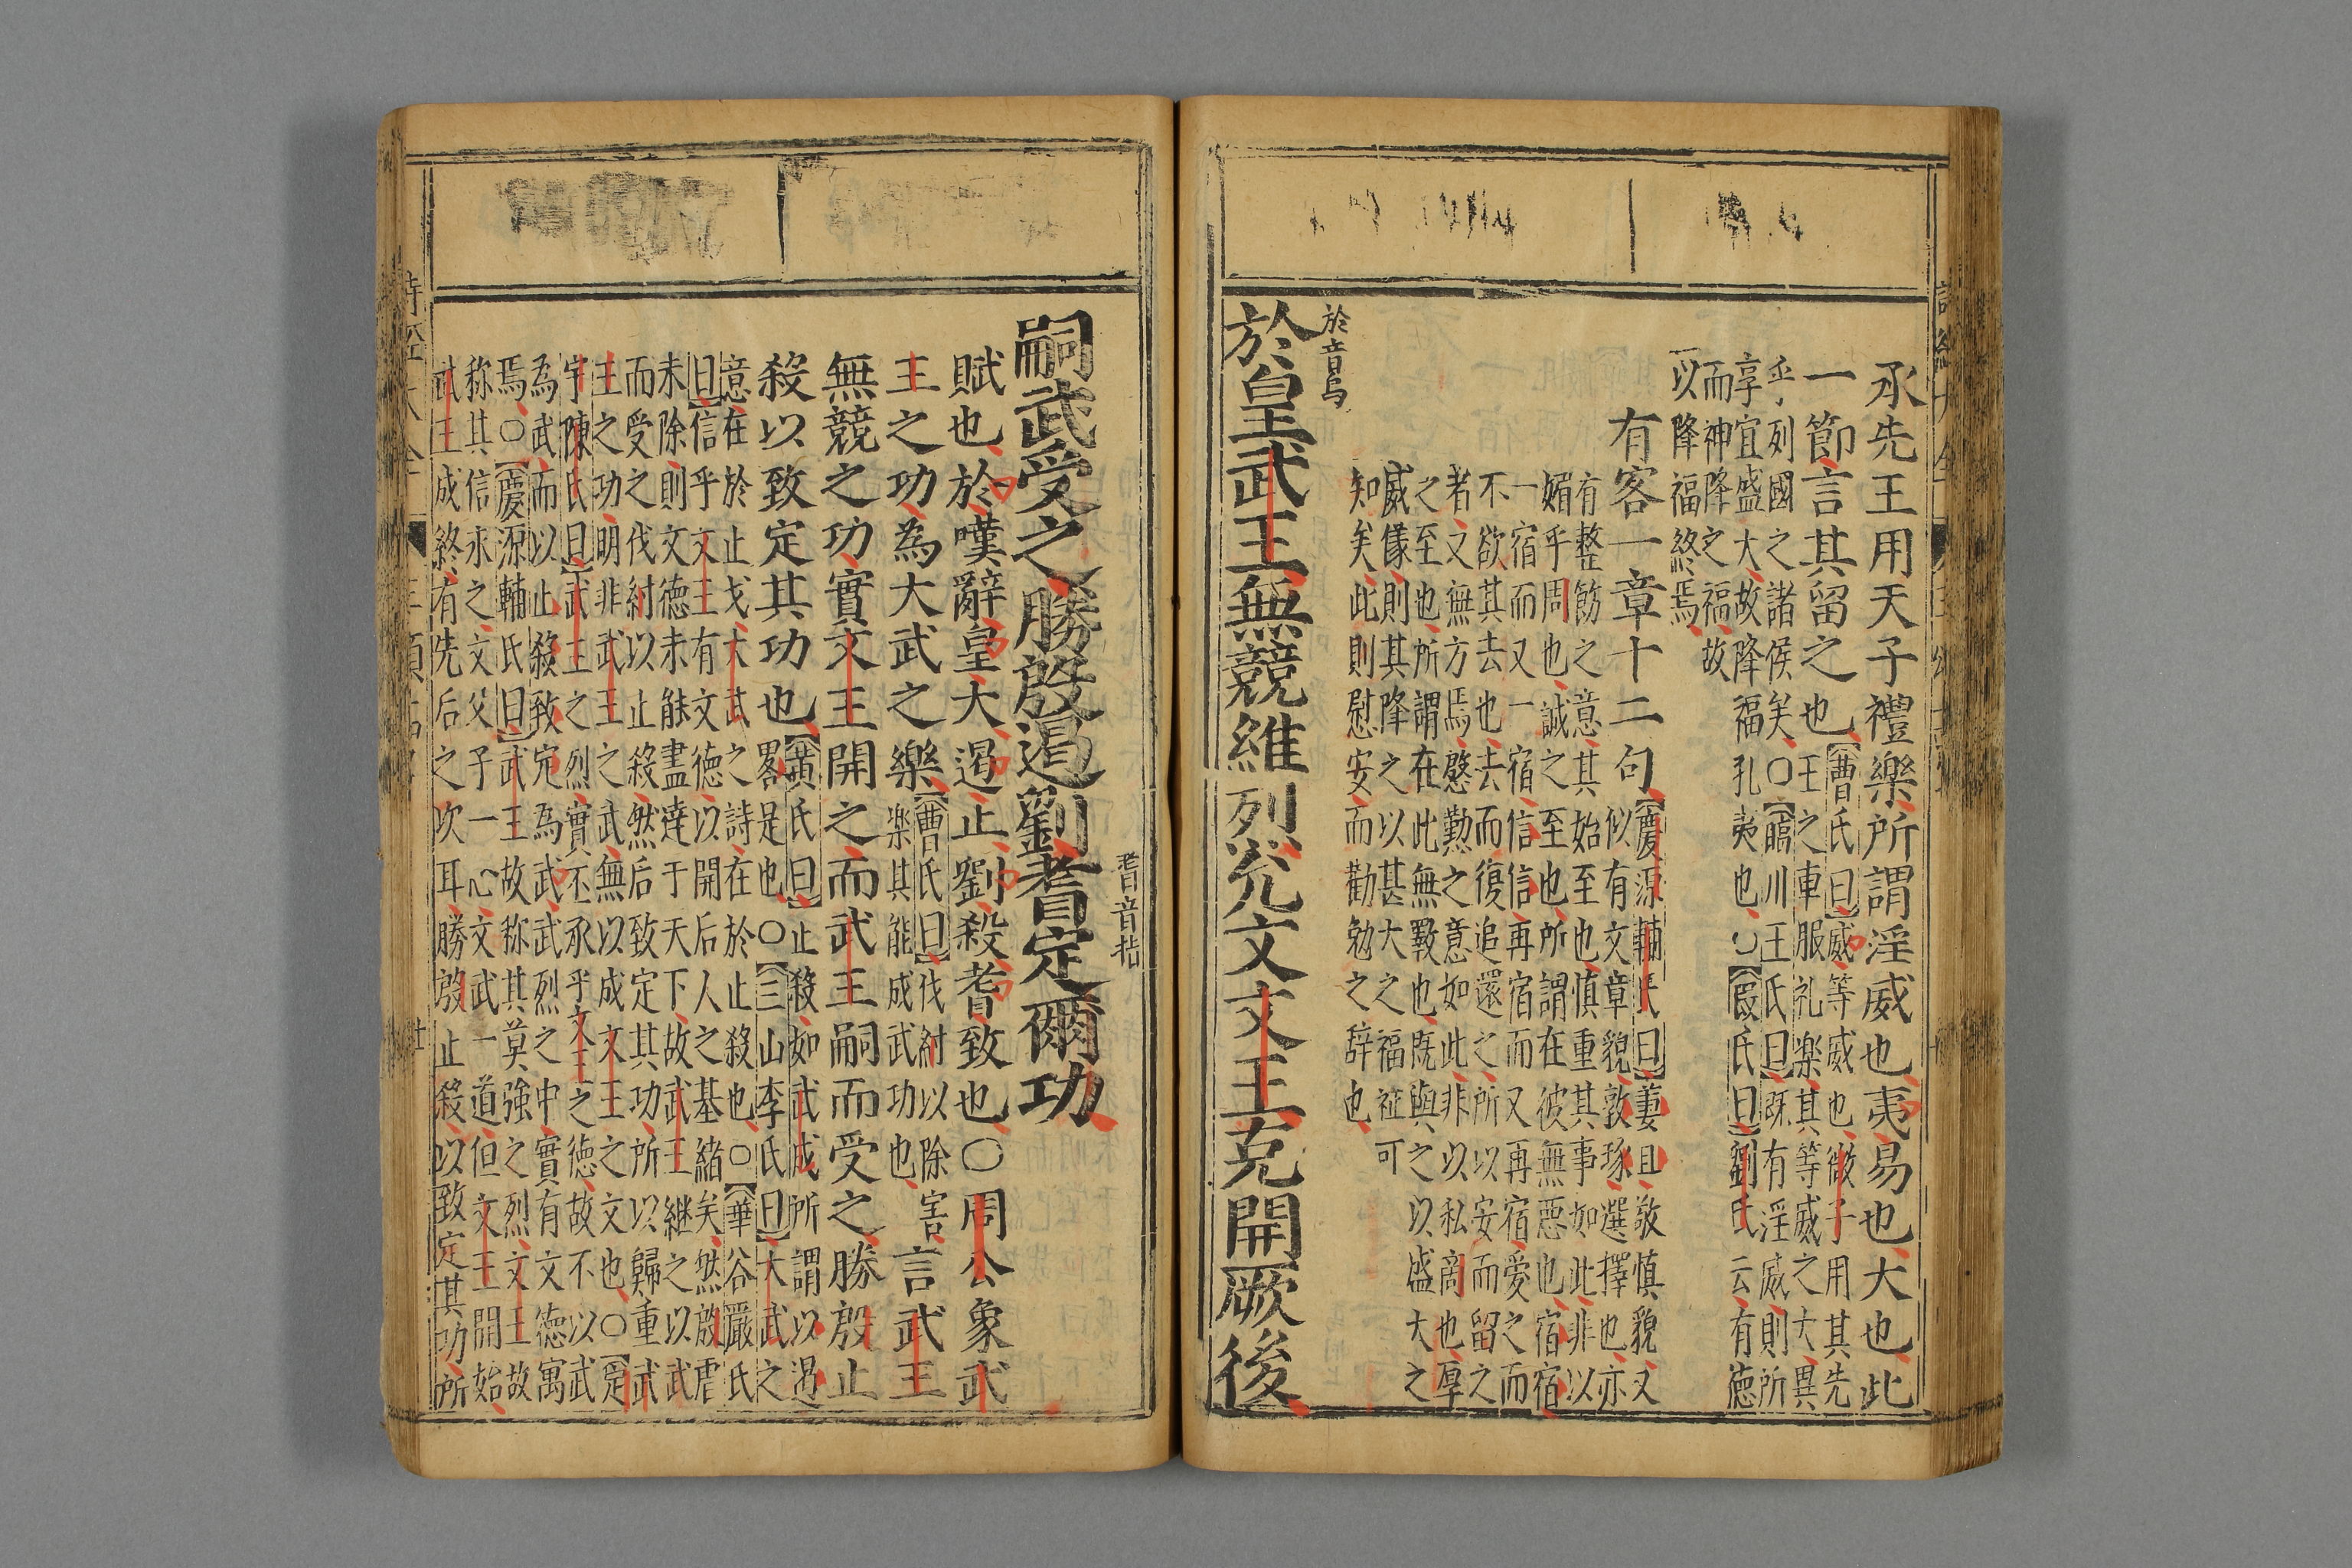 承先王用天子禮樂所謂淫威也夷易也大也此
一節言其留之也
曹氏曰威等威也微子用其先
王之車服礼楽其等威之大異
乎列國之諸侯矣○臨川王氏曰旣有淫威則所
享宜盛大故降福孔夷也○叚氏曰劉氏云有徳
而神降之福故
以降福終焉
有客一章十二句
慶源輔氏曰萋且敬慎貌又
似有文章貌敦琢選擇也亦
有整飭之意其始至也慎重其事如此非以
媚乎周也誠之至也所謂在彼無惡也宿宿
一宿而又一宿信信再宿而又再宿愛之而
不欲其去也去而復追還之所以安而留之
者又無方焉慇勤之意如此非以私商也厚
之至也所謂在此無斁也既與之以盛大之
威儀則其降之以甚大之福祉可
知矣此則慰安而勸勉之辞也
於音烏
於皇武王無競維列允文文王克開厥後
耆音指
嗣武受之勝殷遏劉耆定爾功
賦也於嘆辭皇大遏止劉殺耆致也○周公象武
王之功為大武之樂
曹氏曰伐紂以除害
樂其能成武功也
言武王
無競之功實文王開之而武王嗣而受之勝殷止
殺以致定其功也
黄氏曰止殺如武成所謂以遏
畧是也○三山李氏曰大武之
意在於止戈大武之詩在於止殺也○華谷嚴氏
曰信乎文王有文徳以開后人之基緒矣然殷虐
未除則文徳未能盡達于天下故武王継之以武
而受之伐紂以止殺然后致定其功所以歸重武
王之功明非武王之武無以成文王之文也○定
宇陳氏曰武王之烈實丕承乎文王之徳故不以武
為武而以止殺致定為武武烈之中實有文徳寓
焉○慶源輔氏曰武王故称其莫強之烈文王故
称其信求之文父子一心文武一道但文王開始
武王成終有先后之次耳勝殷止殺以致定其功所